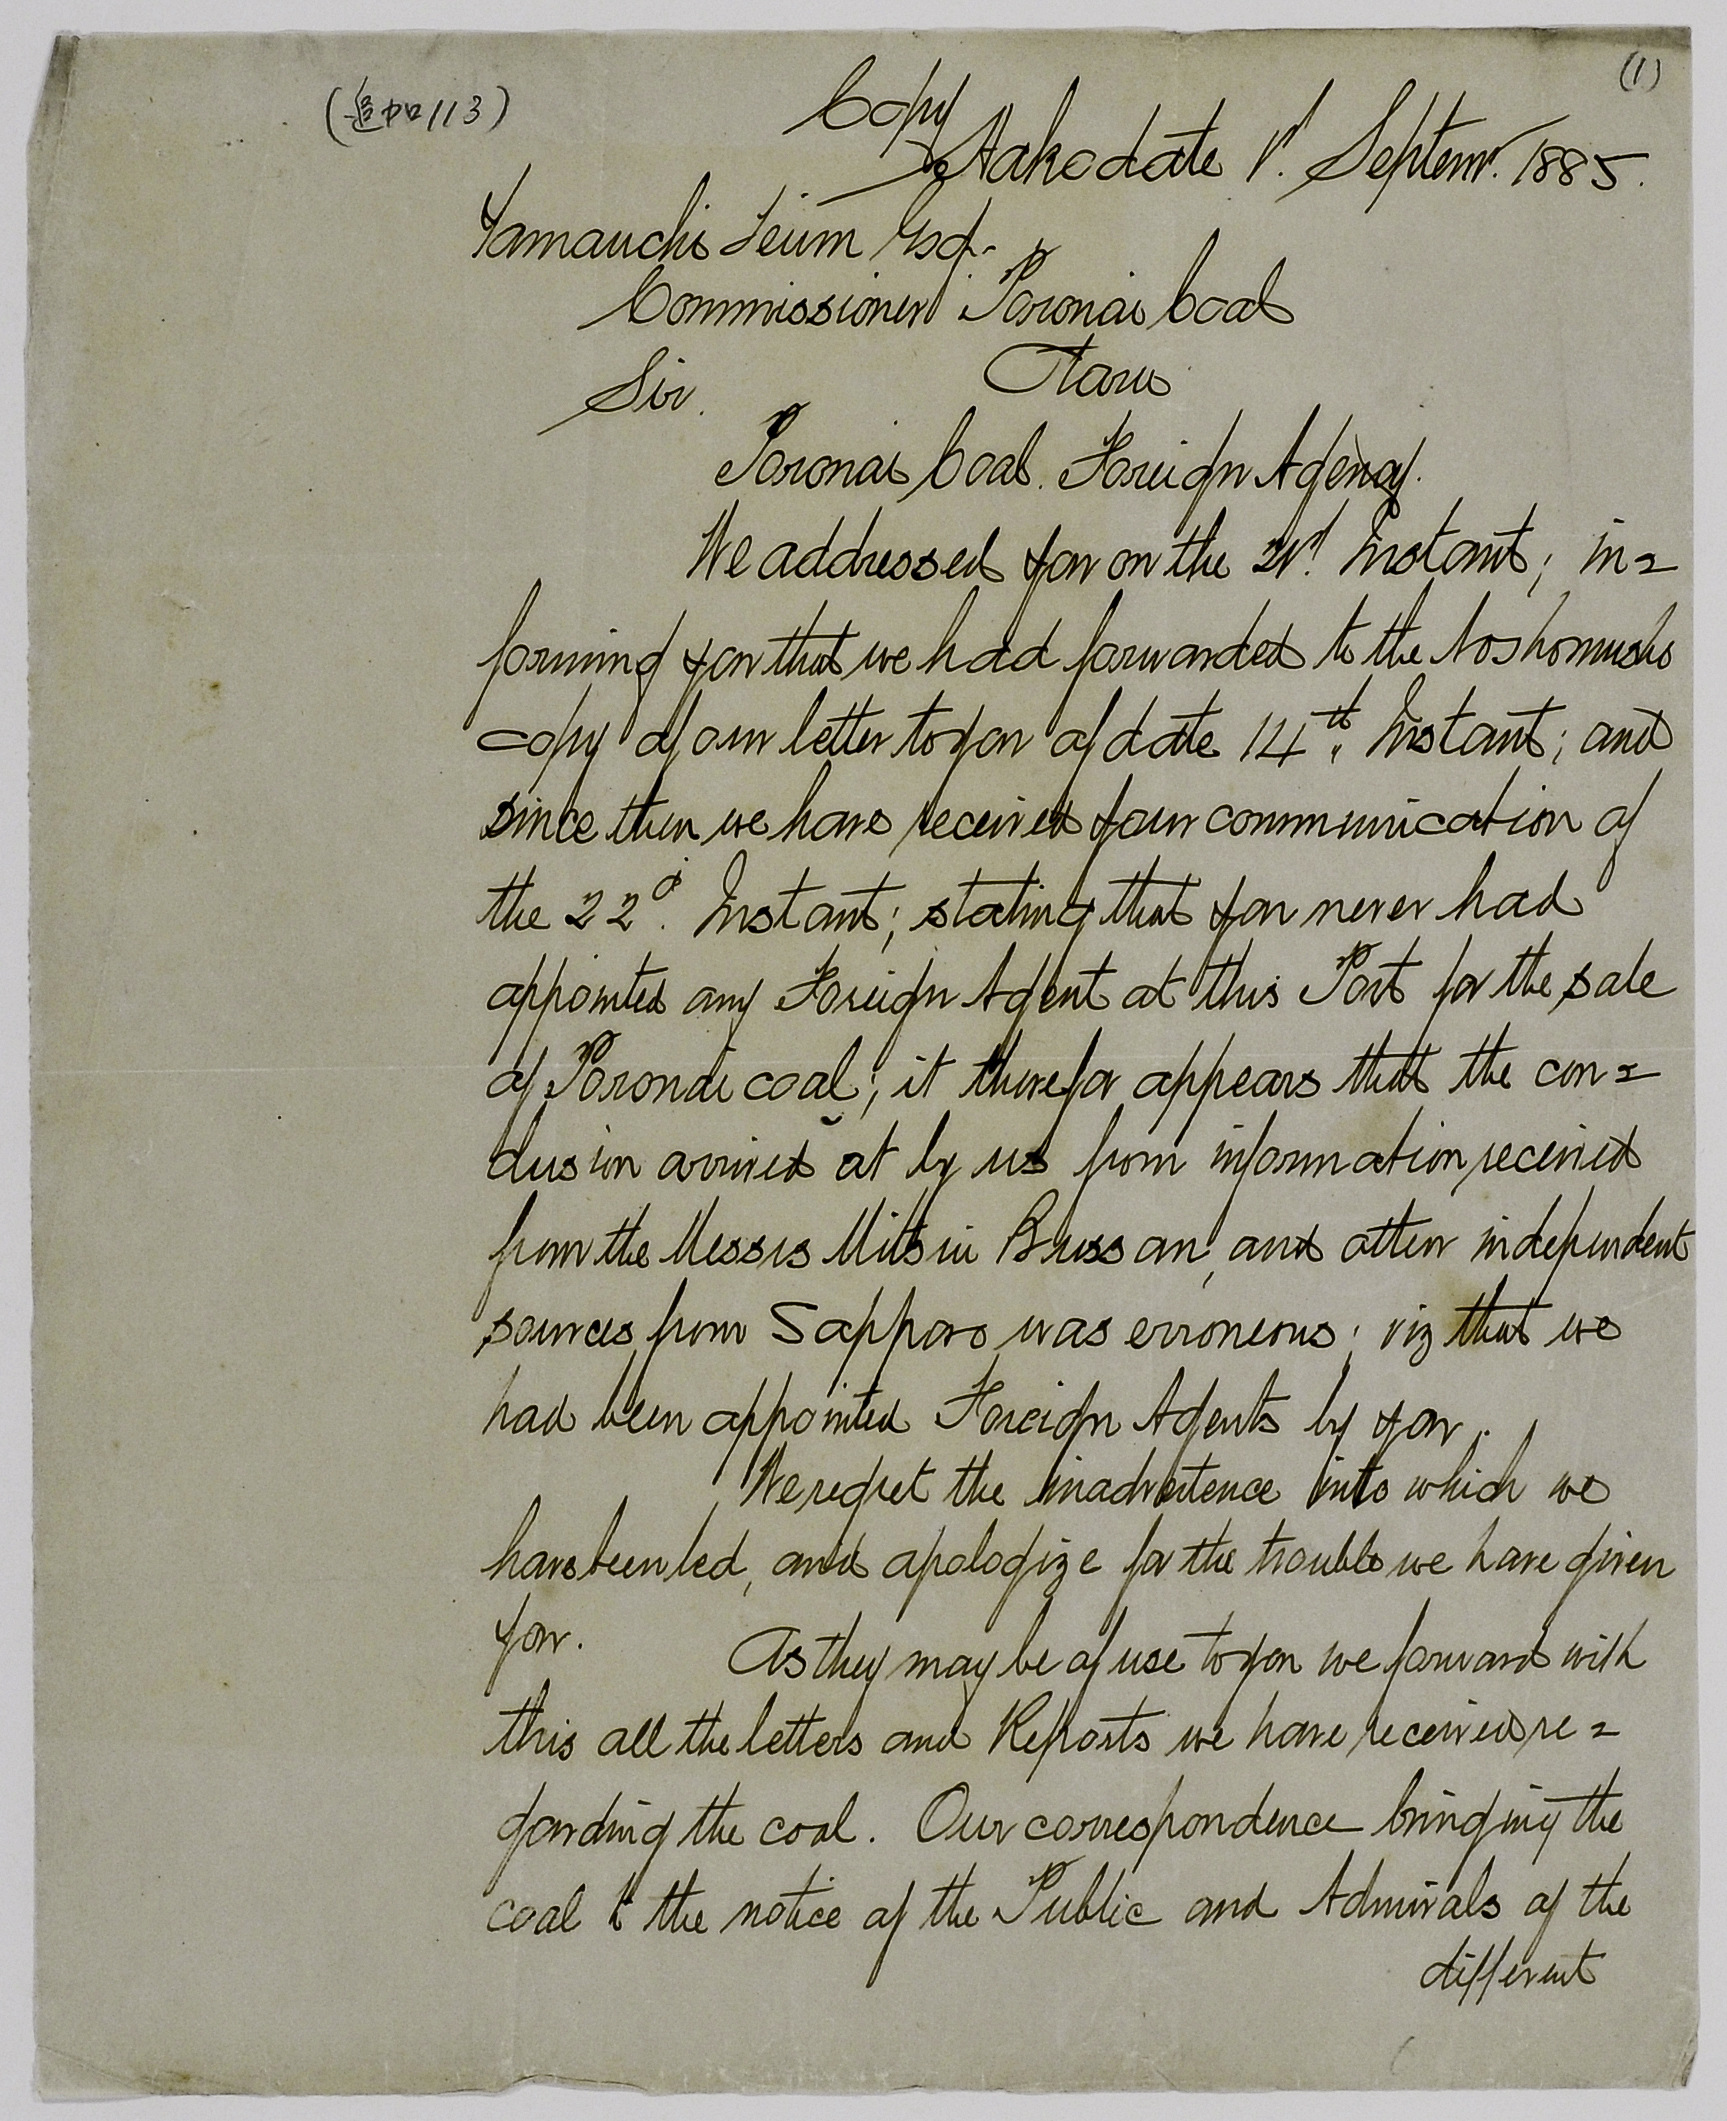 (1)
(追加113)
Copy
Hakodate 1st. Septemr. 1885.
Yamauchi Teium Esq.
Commissioner Poronai Coal
Otaru
Sir.
Poronai Coal. Foreign Agency.
We addressed you on the 21st. Instant; in=
forming you that we had forwarded to the Noshomusho
copy of our letter to you of date 14th. Instant; and
since then we have received your communication of
the 22d. Instant; stating that you never had
appointed any Foreign Agent at this Port for the sale
of Poronai coal; it therefor appears that the con=
clusion arrived at by us from information received
from the Messrs Mitsui Bussan, and other independent
sources from Sapporo was erroneous; viz that we
had been appointed Foreign Agents by you.
We regret the inadvertence into which we
have been led, and apologize for the trouble we have given
you.
As they may be of use to you we forward with
this all the letters and Reports we have received re=
garding the coal. Our correspondence bringing the
coal to the notice of the Public and Admirals of the
different